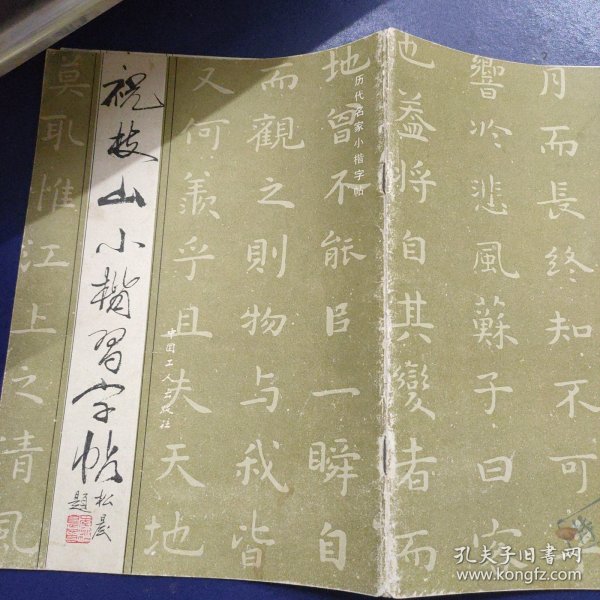 月而長終知不可
響於悲風蘇子曰客
也盖将自其變者而
地曾不能㠯一瞬自
而觀之則物与我皆
又何羨乎且夫天地
莫取惟江上之清風
历代名家小楷字帖
中国工人出版社
祝枝山小楷習字帖
松晨題
孔夫子旧书网
www.kongfz.com